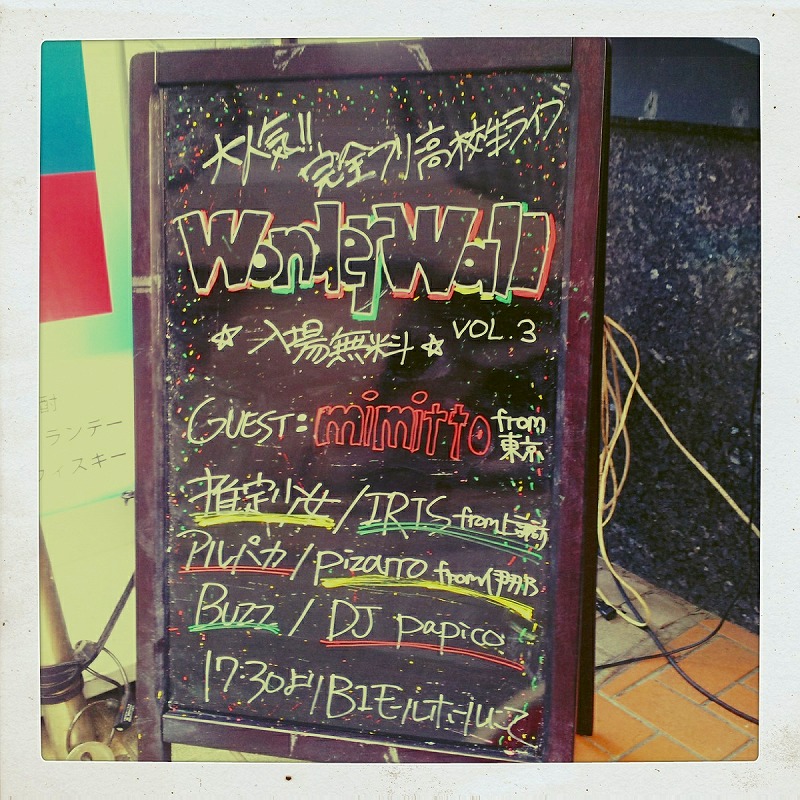 大人気!! 完全フリ高校生ライブ
WonderWall
☆入場無料☆ VOL.3
GUEST: mimitto from 東京
推定少女/IRIS from 上諏訪
アルパカ/pizarro from 伊那
Buzz / DJ papico
17:30より B1モルホールにて
酎
ランデー
ウィスキー